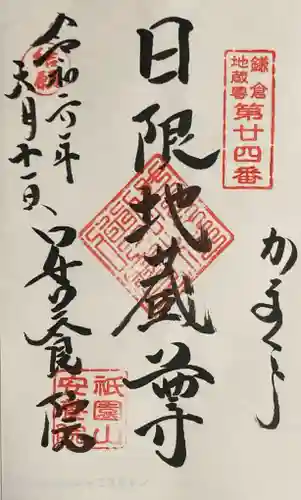 鎌倉
地蔵尊
第廿四番
かまくら
日限地蔵尊
結願
令和六年
月十一日
安養院
祇園山
安養院